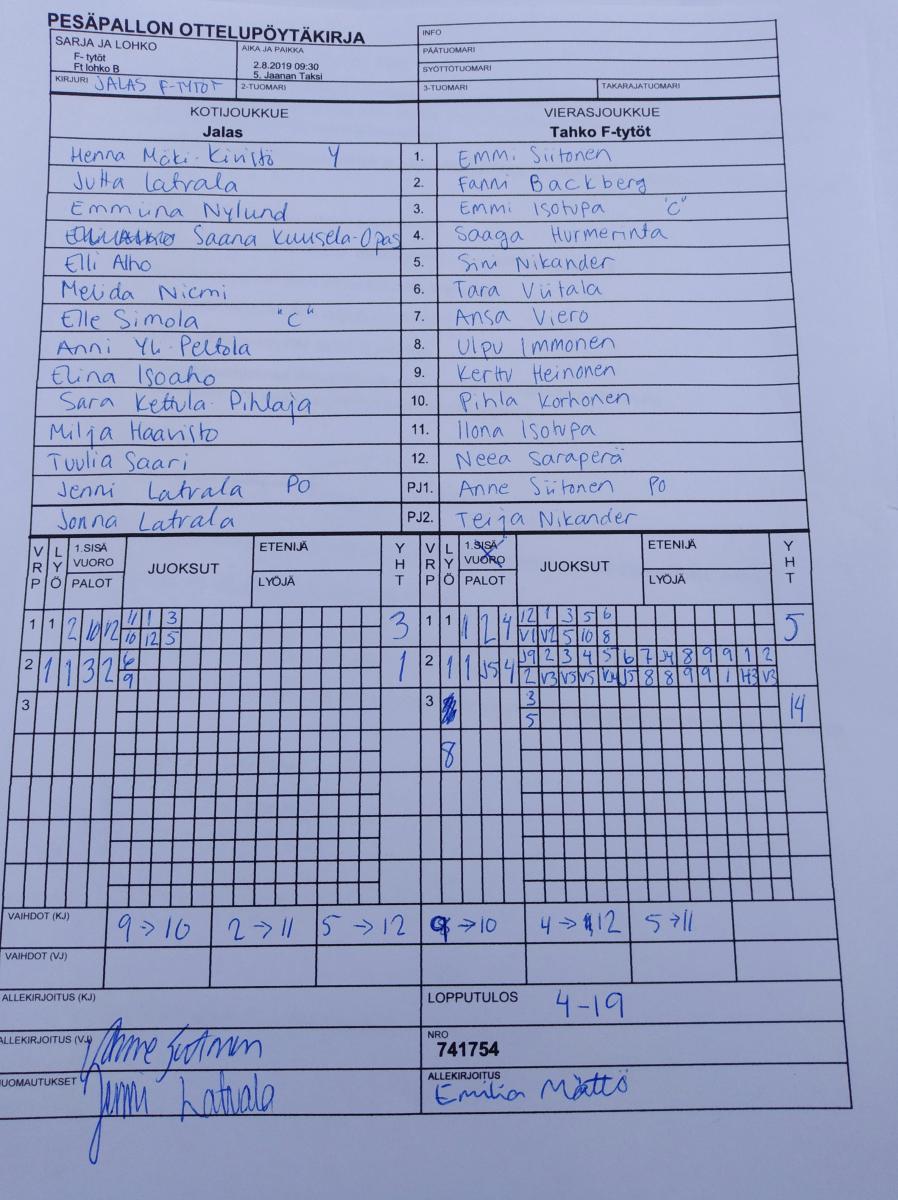 PESÄPALLON OTTELUPÖYTÄKIRJA
SARJA JA LOHKO
F- tytöt
Ft lohko B
AIKA JA PAIKKA
2.8.2019 09:30
5. Jaanan Taksi
KIRJURI JALAS F-TYTÖT
2-TUOMARI
INFO
PÄÄTUOMARI
SYÖTTÖTUOMARI
3-TUOMARI
TAKARAJATUOMARI
KOTIJOUKKUE
Jalas
VIERASJOUKKUE
Tahko F-tytöt
Henna Mäki-Kivistö Y 1. Emmi Siitonen
Jutta Latvala 2. Fanni Backberg
Emmiina Nylund 3. Emmi Isotupa "C"
Saana Kuusela-Opas 4. Saaga Hurmerinta
Elli Alho 5. Sini Nikander
Melida Niemi 6. Tara Viitala
Elle Simola "C" 7. Ansa Viero
Anni Yli-Peltola 8. Ulpu Immonen
Elina Isoaho 9. Kerttu Heinonen
Sara Kettula-Pihlaja 10. Pihla Korhonen
Milja Haavisto 11. Ilona Isotupa
Tuulia Saari 12. Neea Saraperä
Jenni Latvala PO PJ1. Anne Siitonen PO
Jonna Latvala PJ2. Teija Nikander
VRP LYÖ 1.SISÄ VUORO PALOT JUOKSUT ETENIJÄ LYÖJÄ YHT VRP LYÖ 1.SISÄ VUORO PALOT JUOKSUT ETENIJÄ LYÖJÄ YHT
1 1 2 10 12 11 1 3 3 1 1 1 2 4 12 1 3 5 6 5
10 12 5 V1 V2 5 10 8
2 1 1 3 2 6 1 2 1 1 J5 4 J9 2 3 4 5 6 7 J4 8 9 9 1 2
9 2 V3 V5 V5 J5 8 8 9 9 1 H3 V3
3 3 3 14
5
8
VAIHDOT (KJ) 9→10 2→11 5→12 9→10 4→12 5→11
VAIHDOT (VJ)
ALLEKIRJOITUS (KJ)
LOPPUTULOS 4-19
ALLEKIRJOITUS (VJ) Anne Siitonen
NRO
741754
HUOMAUTUKSET Jenni Latvala
ALLEKIRJOITUS
Emilia Mättö